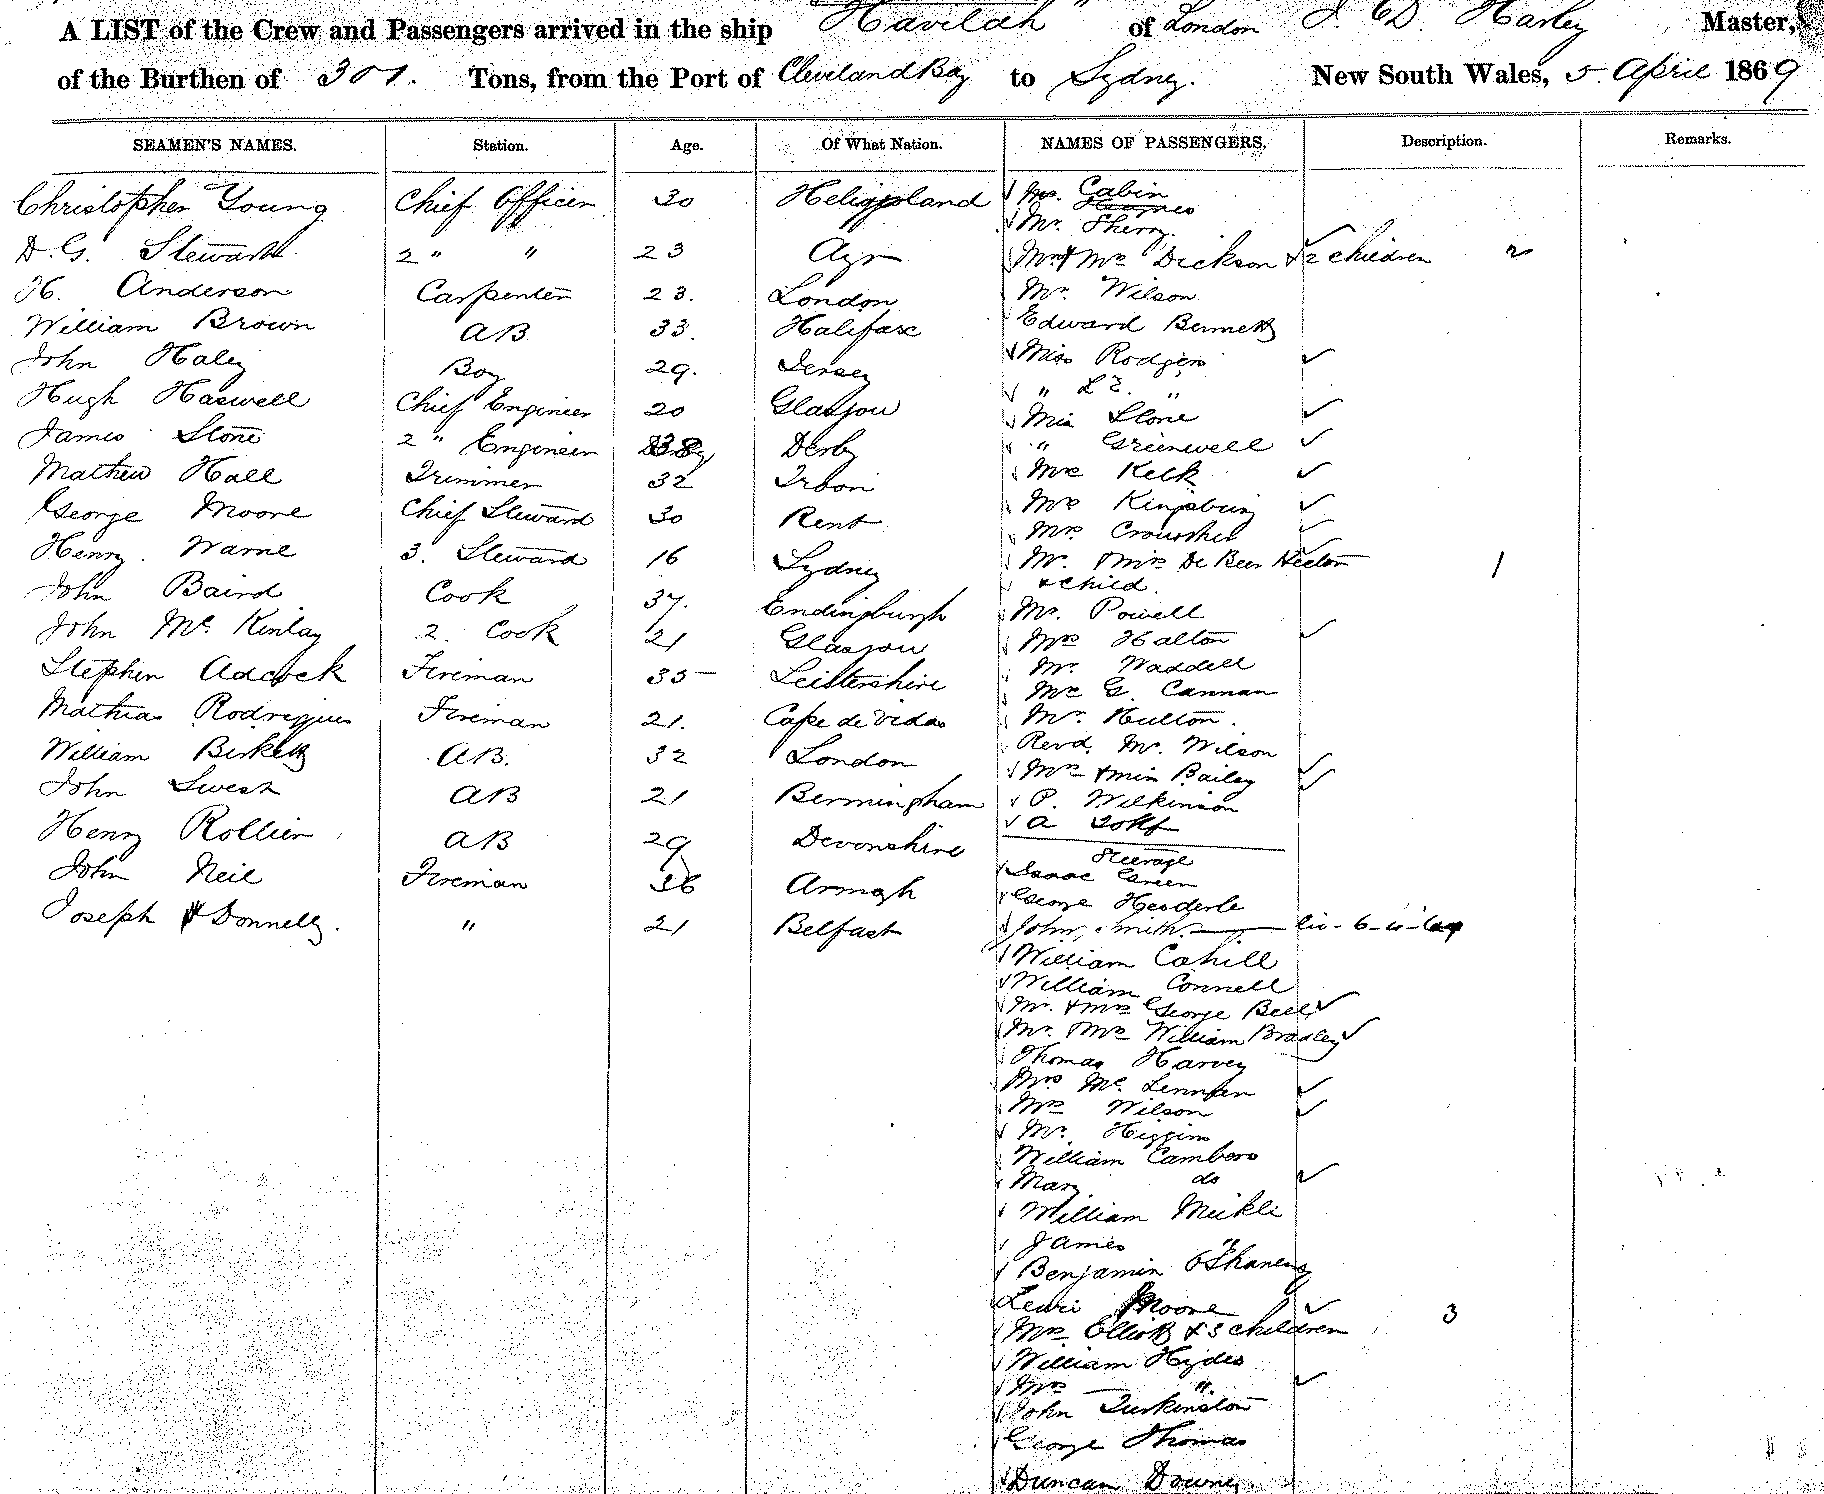 A LIST of the Crew and Passengers arrived in the ship "Havilah" of London J. CD. Harley Master,
of the Burthen of 301. Tons, from the Port of Cleveland Bay to Sydney. New South Wales, 5 April 1869
SEAMEN'S NAMES. Station. Age. Of What Nation. NAMES OF PASSENGERS. Description. Remarks.
Christopher Young Chief Officer 30 Heligoland
D. G. Stewart 2 " " 23 Ayr
H. Anderson Carpenter 23. London
William Brown AB 33. Halifax
John Haley Boy 29. Jersey
Hugh Haswell Chief Engineer 20 Glasgow
James Stone 2 " Engineer Derby
Mathew Hall Trimmer 32
George Moore Chief Steward 30 Kent
Henry Warne 3. Steward 16 Sydney
John Baird Cook 37. Endingburgh
John Mc. Kinlay 2. Cook 21 Glasgow
Stephen Adcock Fireman 35 Leistershire
Mathias Rodrigues Fireman 21. Cape de Vidas
William Birkett AB. 32 London
John Swest AB 21 Bermingham
Henry Rollier AB 29 Devonshire
John Neil Fireman 36 Armagh
Joseph Donnelly. " 21 Belfast
Cabin
Mr.
Mr. Sherry.
Mr & Mrs Dickson & 2 children 2
Mr. Wilson
Edward Bennett
Miss Rodgers
" "
Miss Stone
" Greenwell
Mrs Keck
Mrs Kingsbury
Mrs Crowther
Mr. & Mrs De Beer Hector 1
& child.
Mr. Powell
Mrs Halton
Mr. Waddell
Mr G. Cannan
Mr. Hulton.
Revd. Mr. Wilson
Mrs & Miss Bailey
P. Wilkinson
A
Steerage
Isaac Green
George Henderle
John Smith.
William Cahill
William Connell
Mr. & Mrs George Bell
Mr. & Mrs William Bradley
Thomas Harvey
Mrs Mc. Lennan
Mrs Wilson
Mr. Higgins
William Cambers
Mary do
William Meikle
James "
Benjamin O'Shanesy
Lewis Moore
Mrs Elliott & 3 children 3
William Hydes
Mrs "
John Turkinstow
George Thomas
Duncan Downey